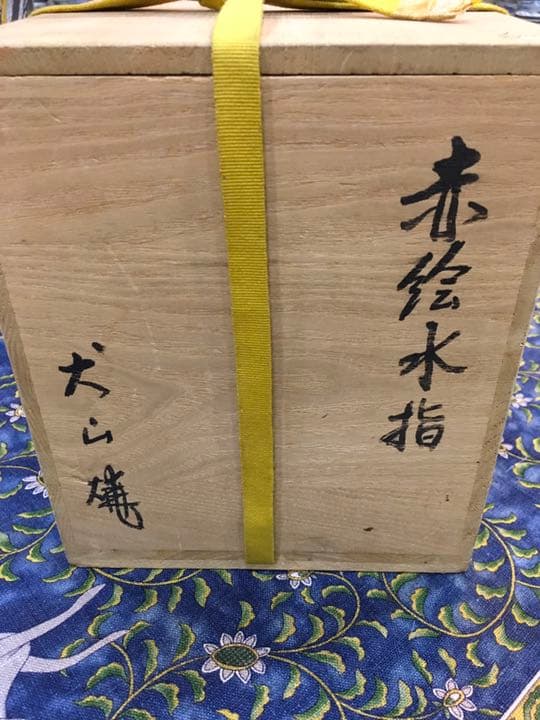 赤絵水指
犬山焼